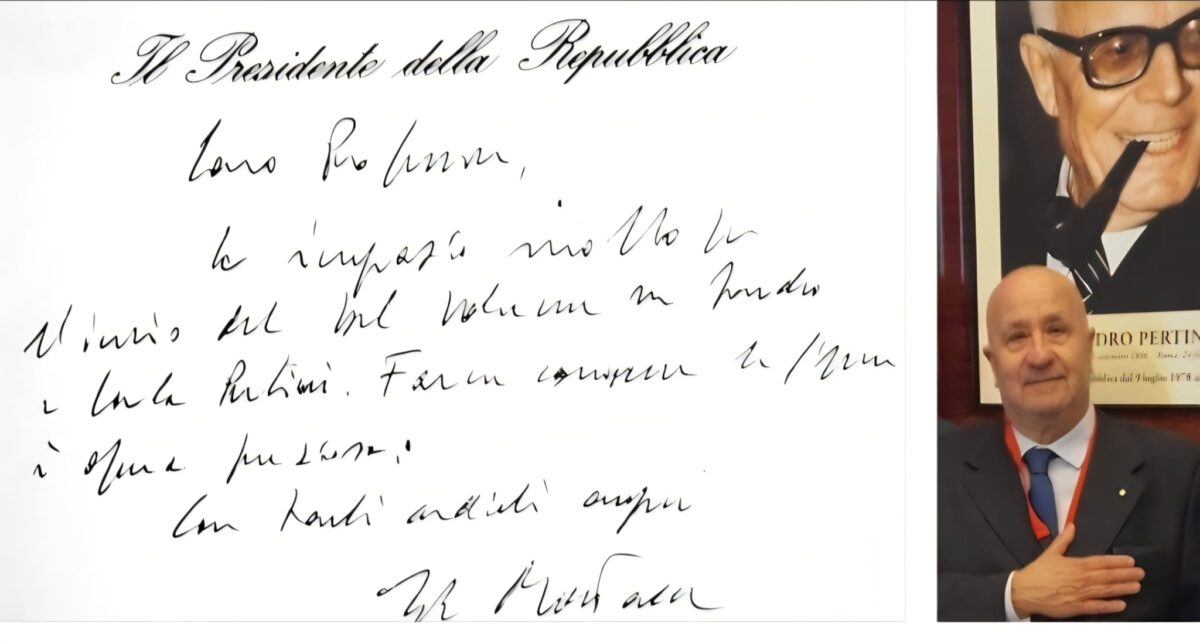 Il Presidente della Repubblica
Caro Professore,
la ringrazio molto per
l'invio del bel volume su Sandro
e Carla Pertini. Far conoscere le figure
è opera preziosa.
Con tanti cordiali auguri
Mattarella
DRO PERTIN
bblica dal 9 luglio 1978 a